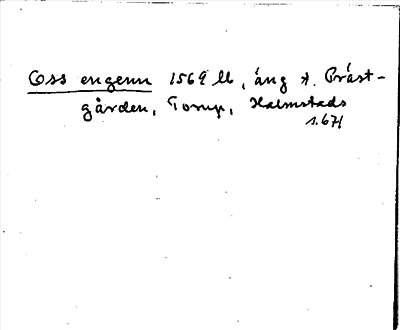 Oss engenn 1569 lb, äng t. Präst-
gården, Torup, Halmstads
s. 671